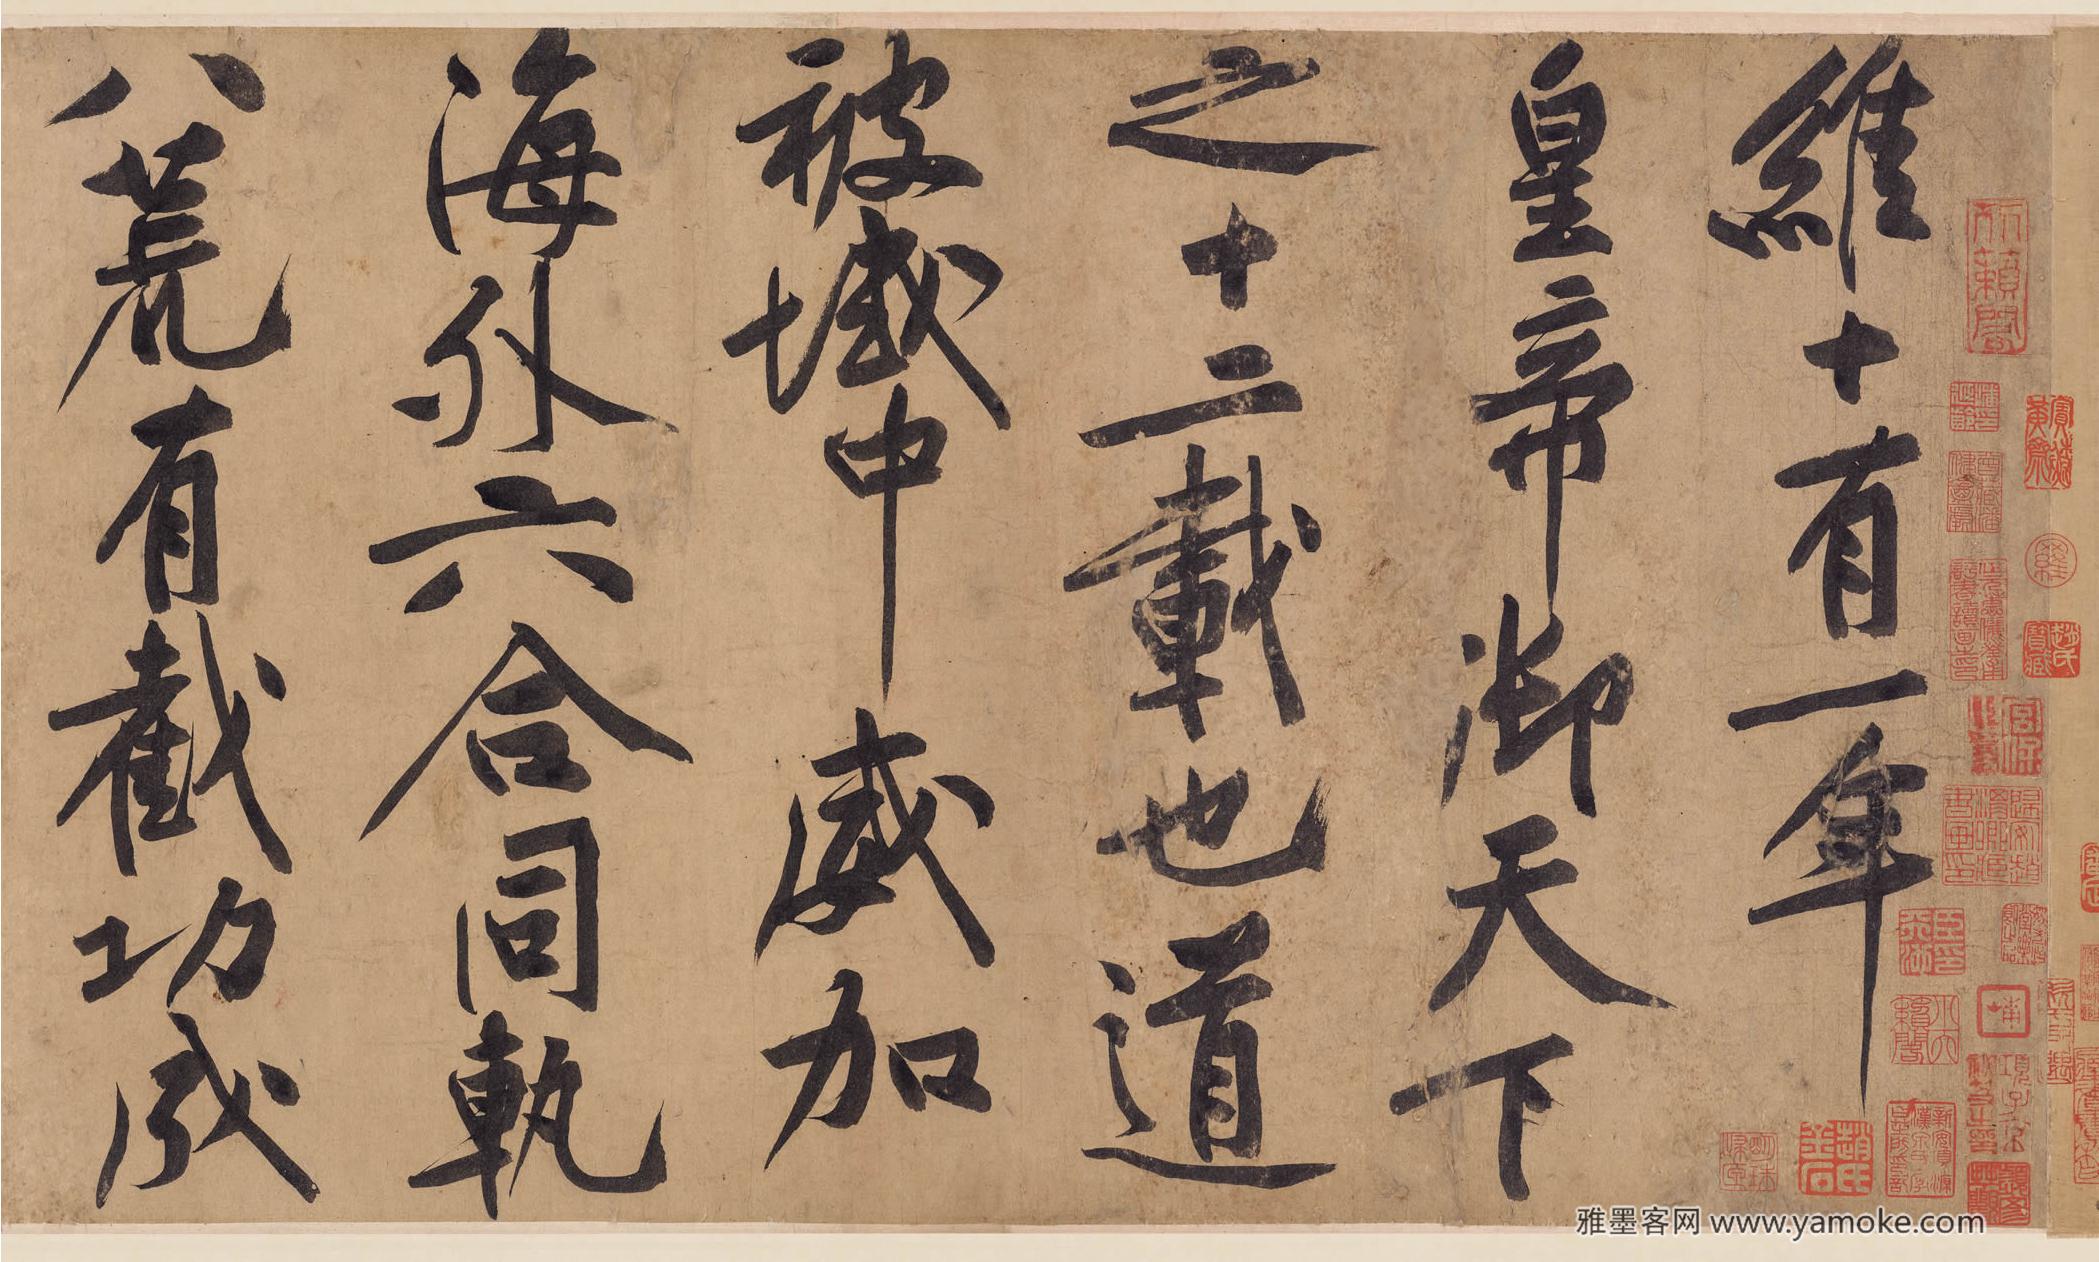 維十有一年
皇帝御天下
之十二載也道
被域中威加
海外六合同軌
八荒有截功成
雅墨客网 www.yamoke.com